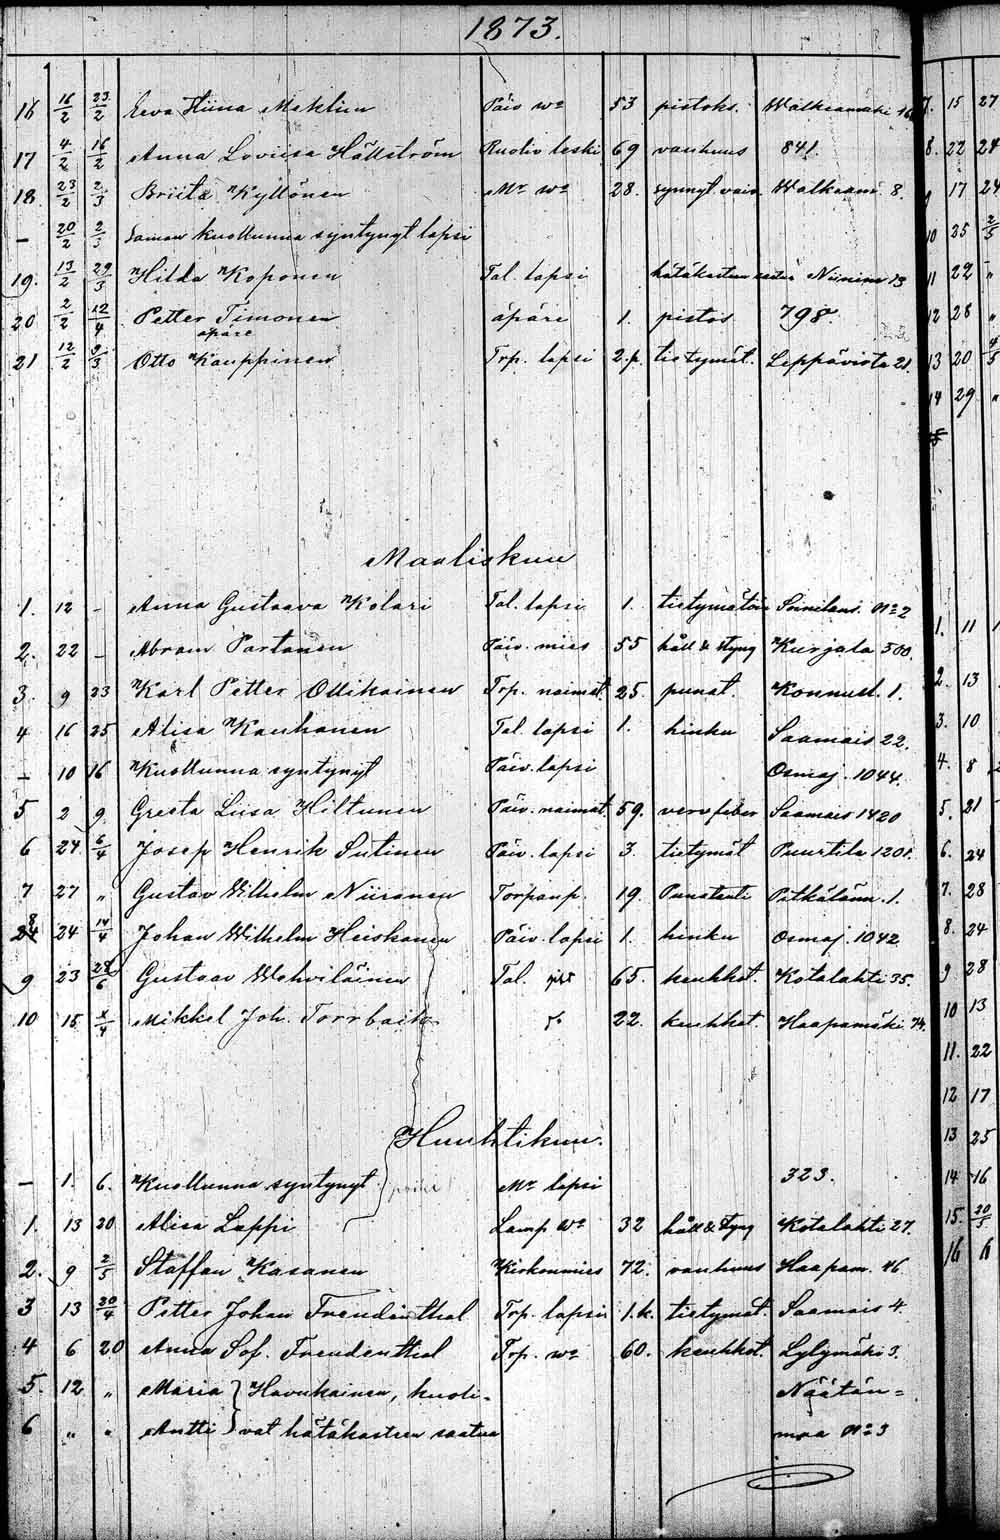 1873.
16 16/2 23/2 Eeva Stiina Miklin Päiv. wo 53 pistoks. Walkeamäki 16
17 4/2 16/2 Anna Loviisa Hällström Ruotiv leski 69 vanhuus 841.
18 23/2 2/3 Briita Kyllönen Mn wo 28. synnyt. vaiv. Walkeam. 8.
— 20/2 2/3 Saman kuollunna syntynyt lapsi
19. 13/2 29/3 Hilda Koponen Tal. lapsi hätäkasteen saatu Niinim 13
20 2/2 12/4 Petter Timonen äpäre 1. pistos 798.
äpäre
21 12/2 9/3 Otto Kauppinen Trp. lapsi 2.p. tietymät. Leppävirta 21.
Maaliskuu
1. 12 — Anna Gustaava Kolari Tal. lapsi 1. tietymätöin Soinilans. No 2
2. 22 — Abram Partanen Päiv. mies 55 håll & styng Kurjala 500.
3. 9 23 Karl Petter Ollikainen Trp. naimat. 25. punat. Konnusl. 1.
4 16 25 Alisa Kauhanen Tal. lapsi 1. hinku Saamais 22.
— 10 16 Kuollunna syntynyt Päiv. lapsi Osmaj. 1044.
5 2 9 Greeta Liisa Hiltunen Päiv. naimat. 59. nerv feber Saamais 1420
6 24 6/4 Josep Henrik Sutinen Päiv. lapsi 3. tietymät Puurtila 1201.
7 27 " Gustav Wilhelm Niiranen Torpanp. 19 Punatauti Patkälänn. 1.
8 24 14/4 Johan Wilhelm Heiskanen Päiv. lapsi 1. hinku Osmaj. 1042
9 23 28/6 Gustaav Wehviläinen Tal. 65. keuhkot. Kotalahti 35.
10 15 /4 Mikkel Joh. Torrbach do 22. keuhkot. Haapamäki 74.
Huuhtikuu.
— 1. 6. Kuollunna syntynyt Mn lapsi 323.
1. 13 20 Alisa Lappi Lamp. wo 32 håll & styng Kotalahti 27.
2. 9 2/5 Staffan Kasanen Kirkonmies 72. vanhuus Haapam. 46
3 13 20/4 Petter Johan Freudenthal Trp. lapsi 1.k. tietymät. Saamais 4.
4 6 20 Anna Sof. Freudenthal Trp. wo 60. keuhkot. Lylymäki 3.
5. 12 " Maria } Havukainen, kuoli- Näätän=
6 " " Antti } vat hätäkasteen saatua maa No 3
7. 15 27
8. 22 24
9 17 24
10 25 2/5
11 22 "
12 28 "
13 20 4/5
14 29 "
1. 11 1
2. 13
3. 10
4. 8
5. 21
6. 24
7. 28
8. 24
9 28
10 13
11. 22
12 17
13 25
14 16
15. 20/5
16 6